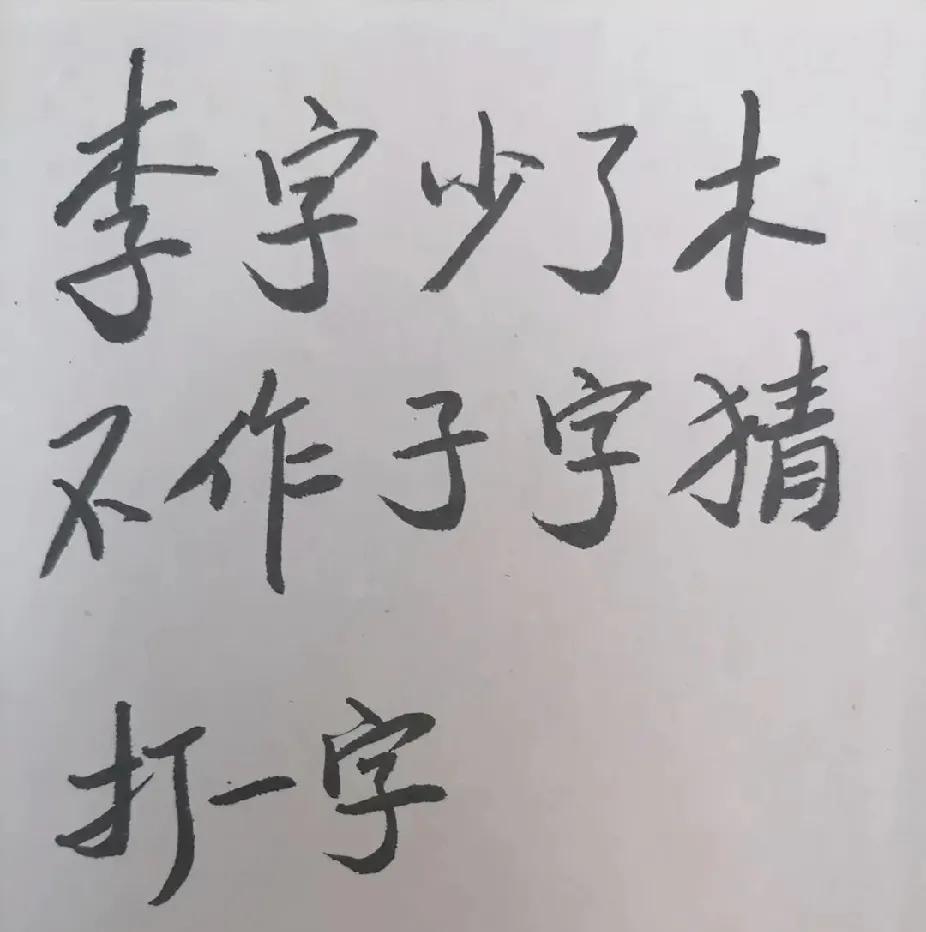 李字少了木
不作子字猜
打一字